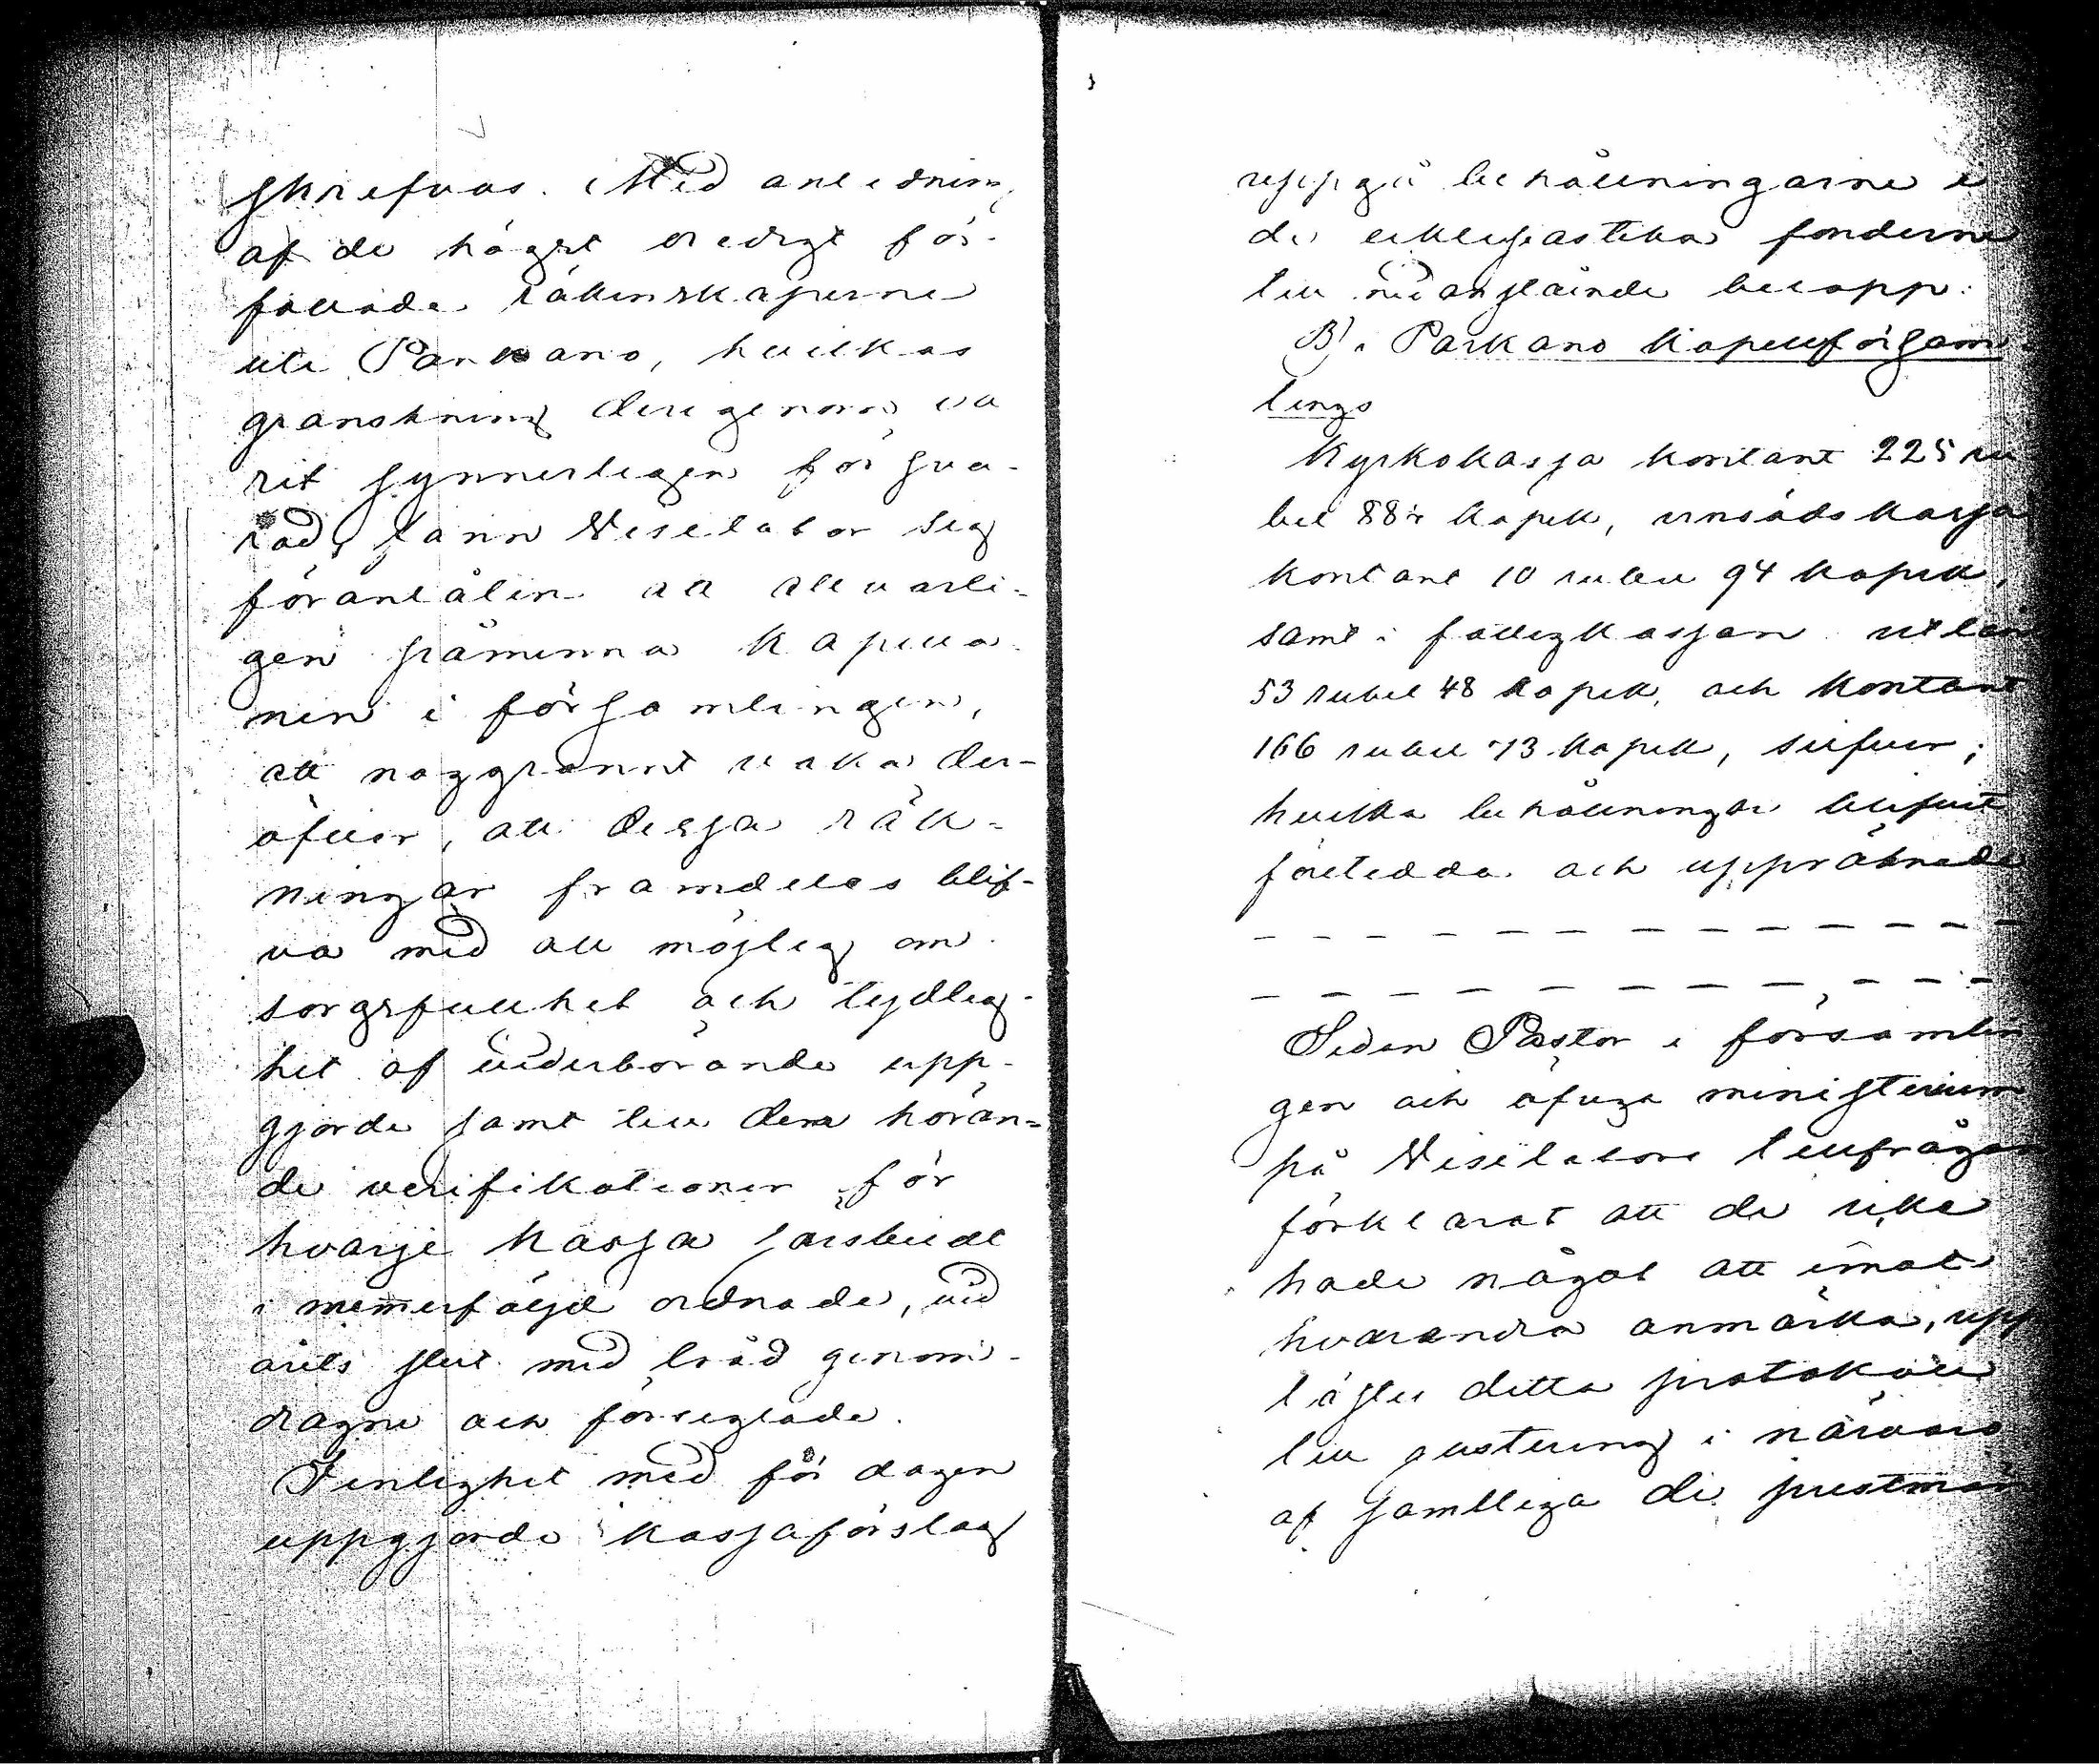 skrefvos. Med anledning
af de högst oredigt för-
fattade räkenskaperne
uti Parkano, hvilkas
granskning derigenom va
rit synnerligen försva-
rad, fann Visitator sig
föranlåten att allvarli-
gen påminna kapella-
nen i församlingen,
att noggrannt vaka der-
öfver, att dessa räk-
ningar framdeles blif-
va med all möjlig om-
sorgsfullhet och tydlig-
het af vederbörande upp-
gjorde samt till dem höran-
de verifikationer för
hvarje kassa särskildt
i nummerföljd ordnade, vid
årets slut med tråd genom-
dragne och förseglade.
I enlighet med för dagen
uppgjorde kassaförslag
uppgå behållningarne i
de eklesiastika fonderne
till nedanstående belopp:
B). Parkano kapellförsam-
lings
Kyrkokassa kontant 225 ru
bel 88½ kopek, insådskassa
kontant 10 rubel 94 kopek,
samt i fattigkassan utlånt
53 rubel 48 kopek, och kontant
166 rubel 73 kopek, silfver;
hvilka behållningar blifvit
företedda och uppräknade
– – – – – – – – – – – – –
– – – – – – – – – – – – –
Sedan Pastor i församlin
gen och öfriga ministerium
på Visitators tillfrågan
förklarat att de icke
hade något att emot
hvarandra anmärka, upp
lästes detta protokoll
till justering i närvaro
af samtliga de prestmän